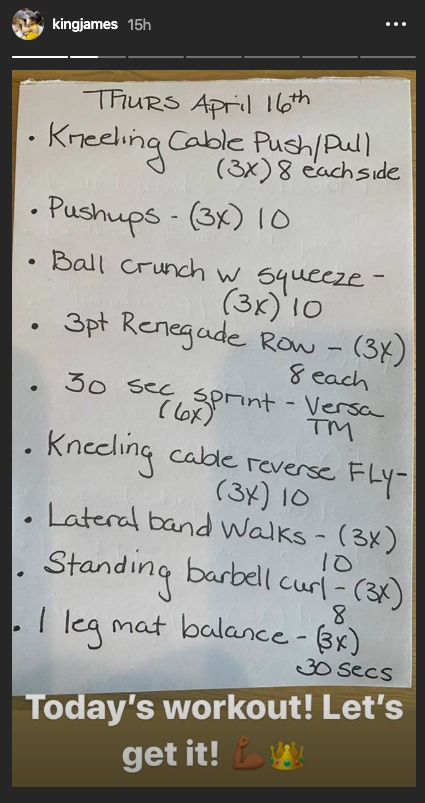 kingjames 15h
THURS April 16th
• Kneeling Cable Push/Pull
(3x) 8 each side
• Pushups - (3x) 10
• Ball crunch w squeeze -
(3x) 10
• 3pt Renegade Row - (3x)
8 each
• 30 sec sprint - Versa
(6x) TM
• Kneeling cable reverse FLy-
(3x) 10
• Lateral band Walks - (3x)
10
• Standing barbell curl - (3x)
8
• 1 leg mat balance - (3x)
30 secs
Today's workout! Let's
get it! 💪🏾👑